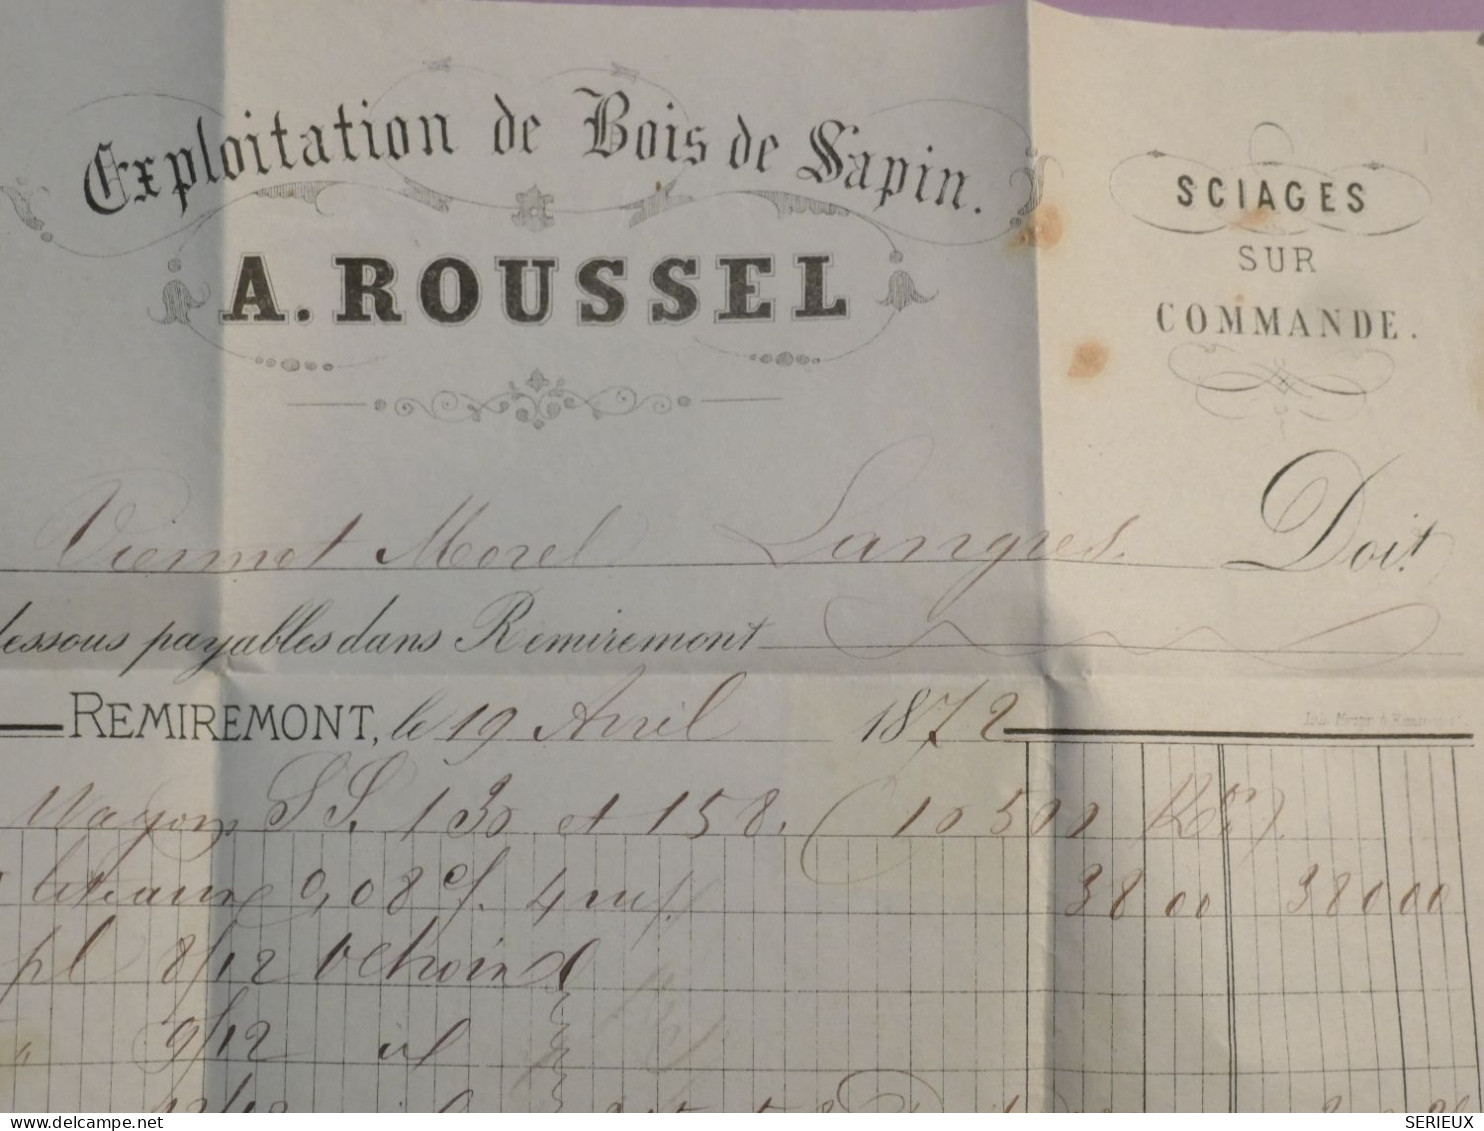 Exploitation de Bois de Sapin.
A. ROUSSEL
SCIAGES
SUR
COMMANDE.
Viennot Morel Langres. Doit
dessous payables dans Remiremont
REMIREMONT, le 19 Avril 1872
Wagons SS. 130 et 158. (10500 Kos).
liteaux 0,08 c/. 4 m 38 00 380 00
pl 8/12 1e choix
" 9/12 id
12/12 id
SERIEUX